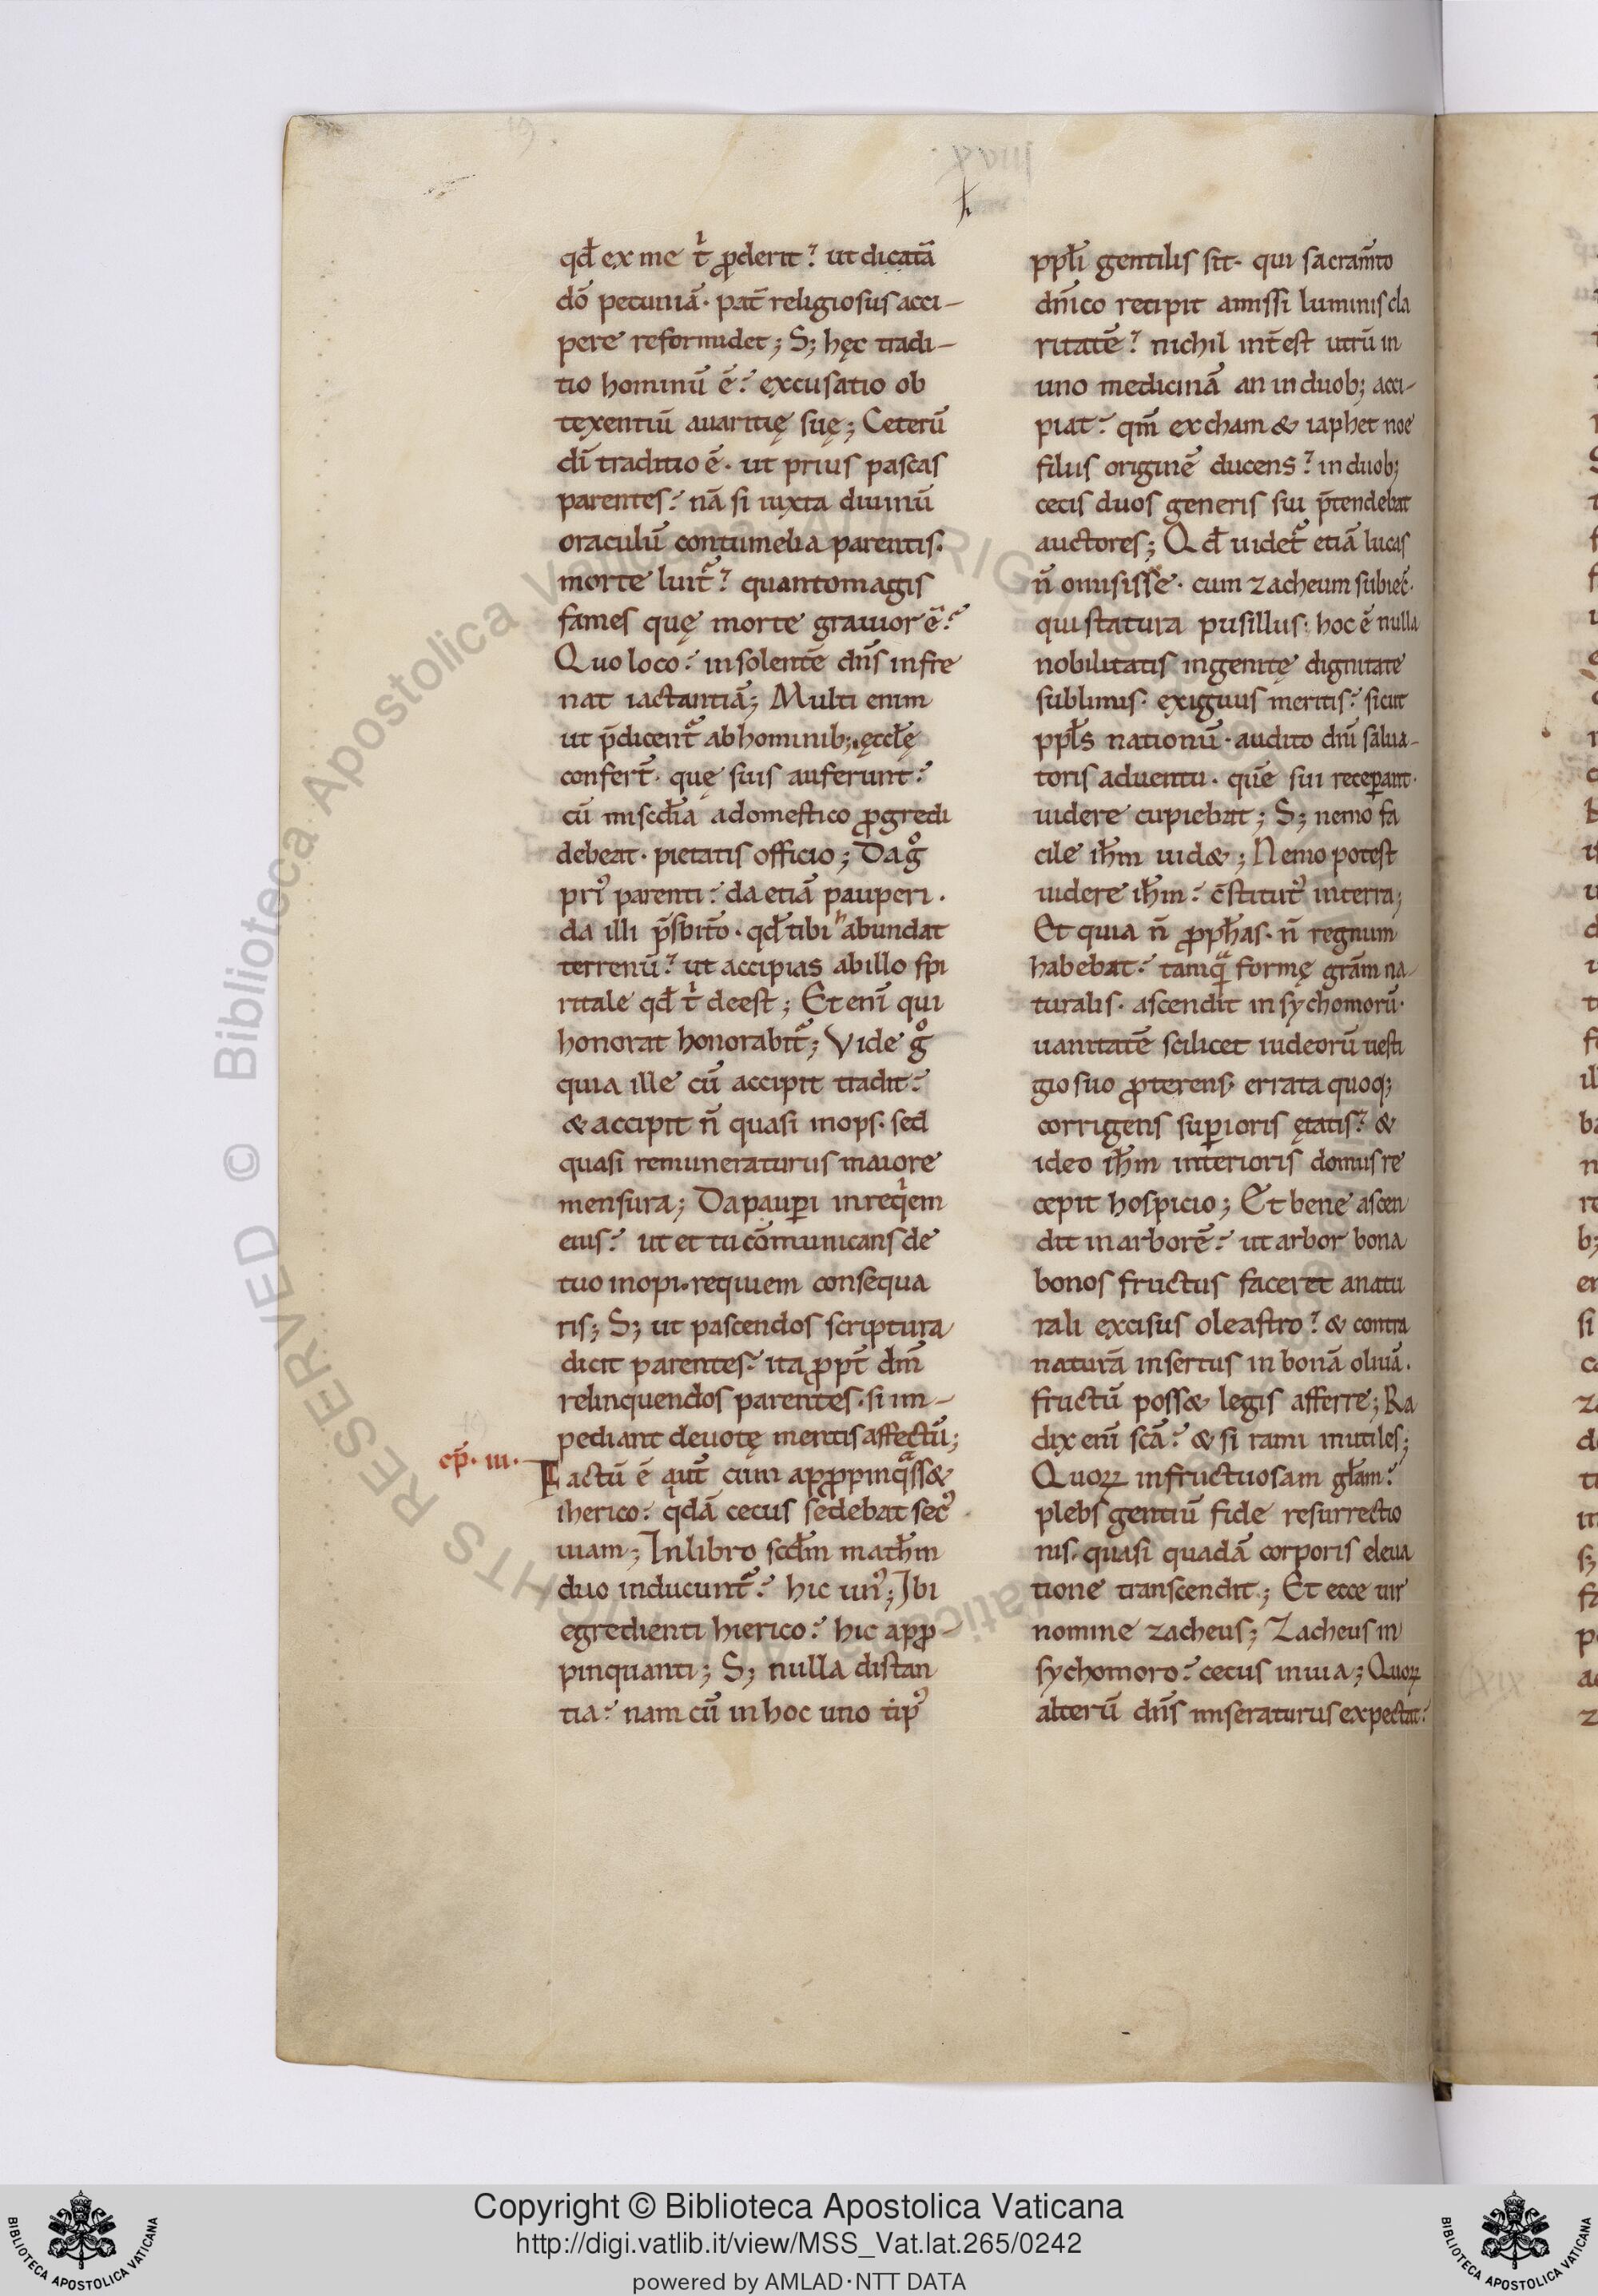 qđ ex me t᷑ ꝓderit? ut dicatā
dō pecuniā· pat̄ religiosus acci-
pere reformidet; S; hęc tradi-
tio hominū ē? excusatio ob
texentiū auaritię suę; Ceterū
dī traditio ē· ut prius pascas
parentes? nā si iuxta diuinū
oraculū contumelia parentis·
morte luit᷑? quantomagis
fames quę morte grauior ē?
Quo loco? insolentē dn̄s infre
nat iactantiā; Multi enim
ut p̄dicent᷑ ab hominib; ęccłę
confert̄· quę suis auferunt?
cū miscđia a domestico ꝓgredi
debeat· pietatis officio; Da gͦ
priꝰ parenti? da etiā pauperi·
da illi p̄sbit̄o· qđ tibi habundat
terrenū? ut accipias ab illo spi
ritale qđ t̄ deest; Et enī qui
honorat honorabit᷑; Vide gͦ
quia ille cū accipit tradit?
& accipit n̄ quasi inops· sed
quasi remuneraturus maiore
mensura; Da pauꝑi in reqͥem
eius? ut et tu cōmunicans de
tuo inopi· requiem consequa
ris; S; ut pascendos scriptura
dicit parentes? ita ꝓpt̄ dn̄m
relinquendos parentes· si im-
pediant deuotę mentis affectū;
ep̄· iii·
Factū ē aut̄ cum apꝓpinqᷓss&
iherico? qͥdā cecus sedebat secꝰ
uiam; In libro scđm mathm̄
duo inducunt᷑? hic unꝰ; Ibi
egredienti hierico? hic apꝓ-
pinquanti; S; nulla distan
tia? nam cū in hoc uno tipꝰ
ppłi gentilis sit· qui sacram̄to
dn̄ico recipit amissi luminis cla
ritatē? nichil int̄est utrū in
uno medicinā an in duob; acci-
piat? qm̄ ex cham & iaphet noe
filiis originē ducens? in duob;
cecis duos generis sui p̄tendebat
auctores; Qđ uidet᷑ etiā lucas
n̄ omisisse· cum zacheum subiec̄·
qui statura pusillus· hoc ē nulla
nobilitatis ingenitę dignitate
sublimis· exiguus meritis? sicut
ppłs nationū· audito dn̄i salua-
toris aduentu· quē sui receꝑant·
uidere cupiebat; S; nemo fa
cile ihm̄ uid&; Nemo potest
uidere ihm̄? c̄stitutꝰ in terra;
Et quia n̄ ꝓphas· n̄ regnum
habebat? tamqᷓ formę grām na-
turalis· ascendit in sychomorū·
uanitatē scilicet iudeorū uesti
gio suo ꝓterens· errata quoq;
corrigens suꝑioris ętatis? &
ideo ihm̄ interioris domus re
cepit hospicio; Et bene ascen
dit in arborē? ut arbor bona
bonos fructus faceret a natu
rali excisus oleastro? & contra
naturā insertus in bonā oliuā·
fructū poss& legis afferre; Ra
dix enī scā? & si rami inutiles;
Quoꝝ infructuosam głam?
plebs gentiū fide resurrectio
nis· quasi quadā corporis eleua
tione transcendit; Et ecce uir
nomine zacheus; Zacheus in
sychomoro? cecus in uia; Quoꝝ
alterū dn̄s miseraturus expectat?
Copyright © Biblioteca Apostolica Vaticana
http://digi.vatlib.it/view/MSS_Vat.lat.265/0242
powered by AMLAD·NTT DATA
BIBLIOTECA APOSTOLICA VATICANA
BIBLIOTECA APOSTOLICA VATICANA